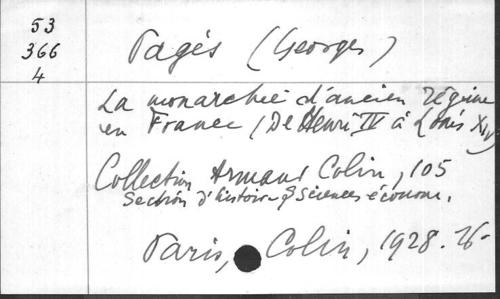 53
366
4
Pagès (Georges)
La monarchie d'ancien régime
en France (De Henri IV à Louis XIV)
Collection Armand Colin, 105
Section d'histoire & sciences économ.
Paris, Colin, 1928.